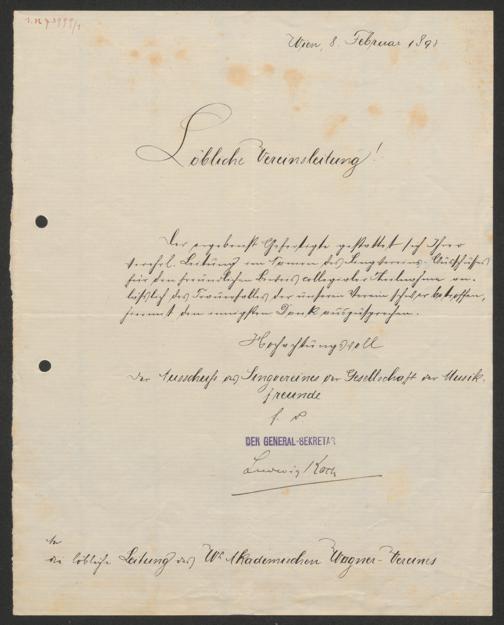 Wien, 8. Februar 189
Löbliche Vereinsleitung!
Der ergebenst Gefertigte gestattet sich Ihrer
verehrl. Leitung im Namen des Singvereins-Ausschusses
für den freundlichen Beweis collegialer Theilnahme an-
läßlich des Trauerfalles der unseren Verein schwer betroffen,
hiermit den innigsten Dank auszusprechen.
Hochachtungsvoll
Der Ausschuss des Singvereines der Gesellschaft der Musik-
freunde
DER GENERAL-SEKRETÄR
Ludwig Koch
An
die löbliche Leitung des Wr. Akademischen Wagner-Vereines